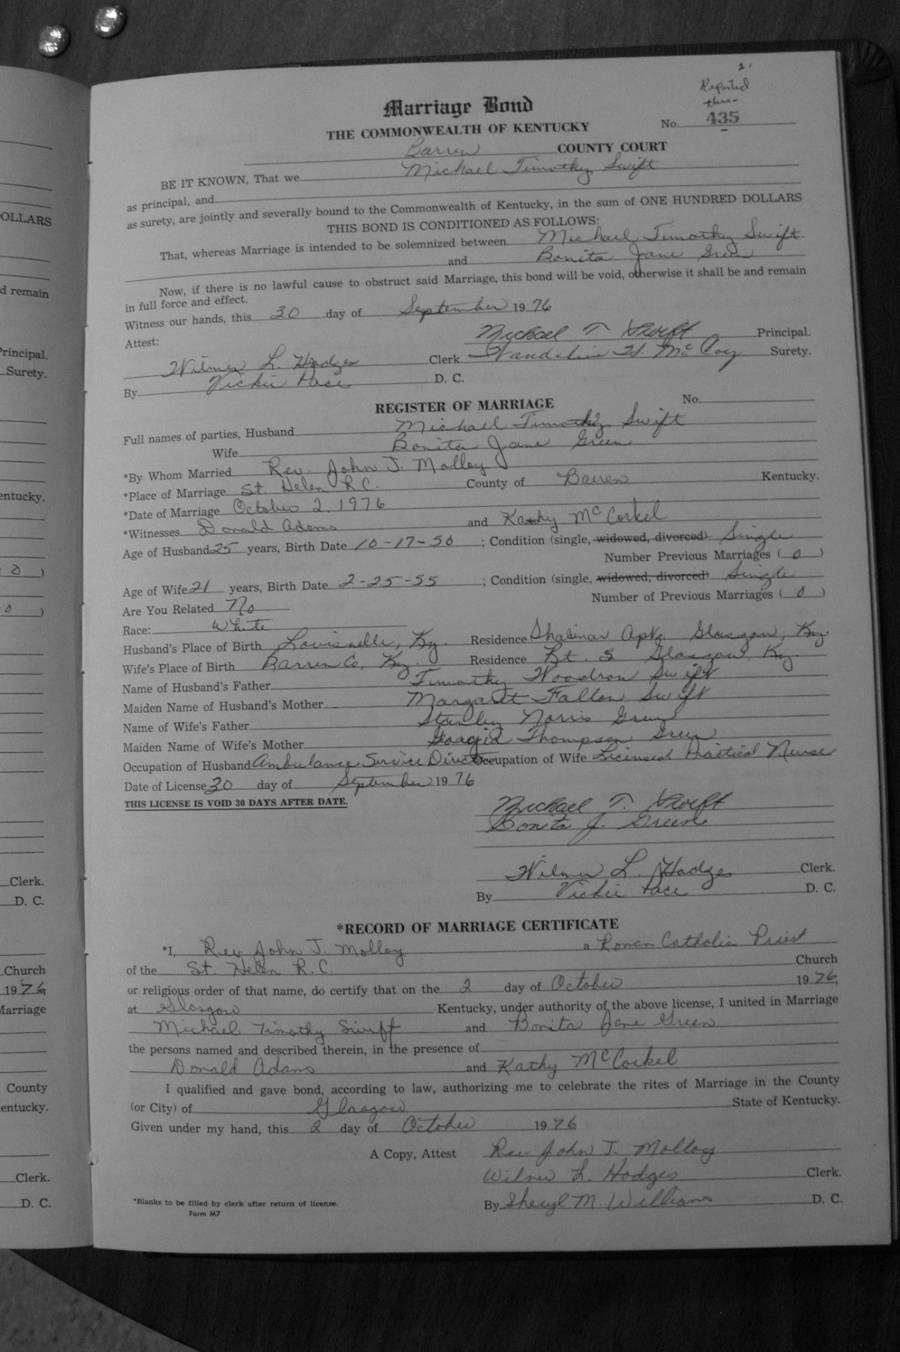 2'
Reported
Marriage Bond
THE COMMONWEALTH OF KENTUCKY No. 435
Barren COUNTY COURT
BE IT KNOWN, That we Michael Timothy Swift
as principal, and
as surety, are jointly and severally bound to the Commonwealth of Kentucky, in the sum of ONE HUNDRED DOLLARS
THIS BOND IS CONDITIONED AS FOLLOWS:
That, whereas Marriage is intended to be solemnized between Michael Timothy Swift
and Bonita Jane Green
Now, if there is no lawful cause to obstruct said Marriage, this bond will be void, otherwise it shall be and remain
in full force and effect.
Witness our hands, this 30 day of September 1976
Attest: Michael T. Swift Principal.
Wilmer L. Hodges Clerk. H McCoy Surety.
By Vickie Pace D. C.
REGISTER OF MARRIAGE No.
Full names of parties, Husband Michael Timothy Swift
Wife Bonita Jane Green
*By Whom Married Rev. John J. Molloy
*Place of Marriage St. Helen R.C. County of Barren Kentucky.
*Date of Marriage October 2, 1976
*Witnesses Donald Adams and Kathy McCorkel
Age of Husband 25 years, Birth Date 10-17-50 ; Condition (single, widowed, divorced) Single
Number Previous Marriages ( 0 )
Age of Wife 21 years, Birth Date 2-25-55 ; Condition (single, widowed, divorced) Single
Number of Previous Marriages ( 0 )
Are You Related No
Race: White
Husband's Place of Birth Louisville, Ky. Residence Shalimar Apts. Glasgow, Ky
Wife's Place of Birth Barren Co, Ky. Residence Rt. 5 Glasgow, Ky.
Name of Husband's Father Timothy Woodrow Swift
Maiden Name of Husband's Mother Margaret Fallon Swift
Name of Wife's Father Stanley Norris Green
Maiden Name of Wife's Mother Thompson Green
Occupation of Husband Ambulance Service Director Occupation of Wife Licensed Practical Nurse
Date of License 30 day of September 1976
THIS LICENSE IS VOID 30 DAYS AFTER DATE.
Michael T. Swift
Bonita J. Green
Wilmer L. Hodges Clerk.
By Vickie Pace D. C.
*RECORD OF MARRIAGE CERTIFICATE
*I, Rev John J. Molloy a Roman Catholic Priest
of the St Helen R.C. Church
or religious order of that name, do certify that on the 2 day of October 1976,
at Glasgow Kentucky, under authority of the above license, I united in Marriage
Michael Timothy Swift and Bonita Jane Green
the persons named and described therein, in the presence of
Donald Adams and Kathy McCorkel
I qualified and gave bond, according to law, authorizing me to celebrate the rites of Marriage in the County
(or City) of Glasgow State of Kentucky.
Given under my hand, this 2 day of October 1976
A Copy, Attest Rev John J. Molloy
Wilmer L. Hodges Clerk.
By Sheryl M. Williams D. C.
*Blanks to be filled by clerk after return of license.
Form M7
OLLARS
d remain
Principal.
Surety.
entucky.
0 )
0 )
Clerk.
D. C.
Church
1976
Marriage
County
entucky.
Clerk.
D. C.